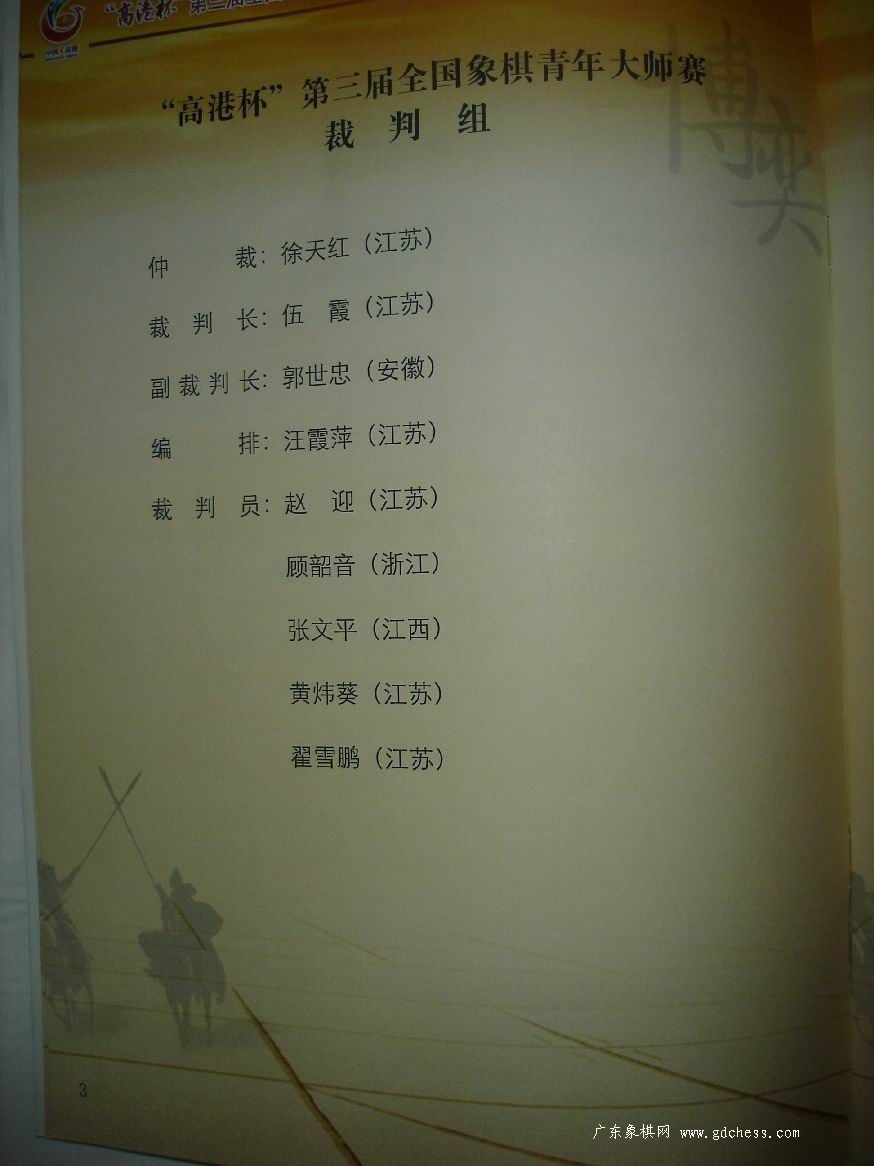 “高港杯”第三届全国
中国·高港
“高港杯”第三届全国象棋青年大师赛
裁 判 组
博弈
仲 裁：徐天红（江苏）
裁 判 长：伍 霞（江苏）
副裁判长：郭世忠（安徽）
编 排：汪霞萍（江苏）
裁 判 员：赵 迎（江苏）
顾韶音（浙江）
张文平（江西）
黄炜葵（江苏）
翟雪鹏（江苏）
3
广东象棋网 www.gdchess.com